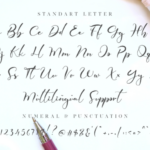 STANDART LETTER
Aa Bb Cc Dd Ee Ff Gg Hh
Ii Jj Kk Ll Mm Nn Oo Pp Qq
Rr Ss Tt Uu Vv Ww Xx Yy Zz
Multilingual Support
NUMERAL & PUNCTUATION
1234567890